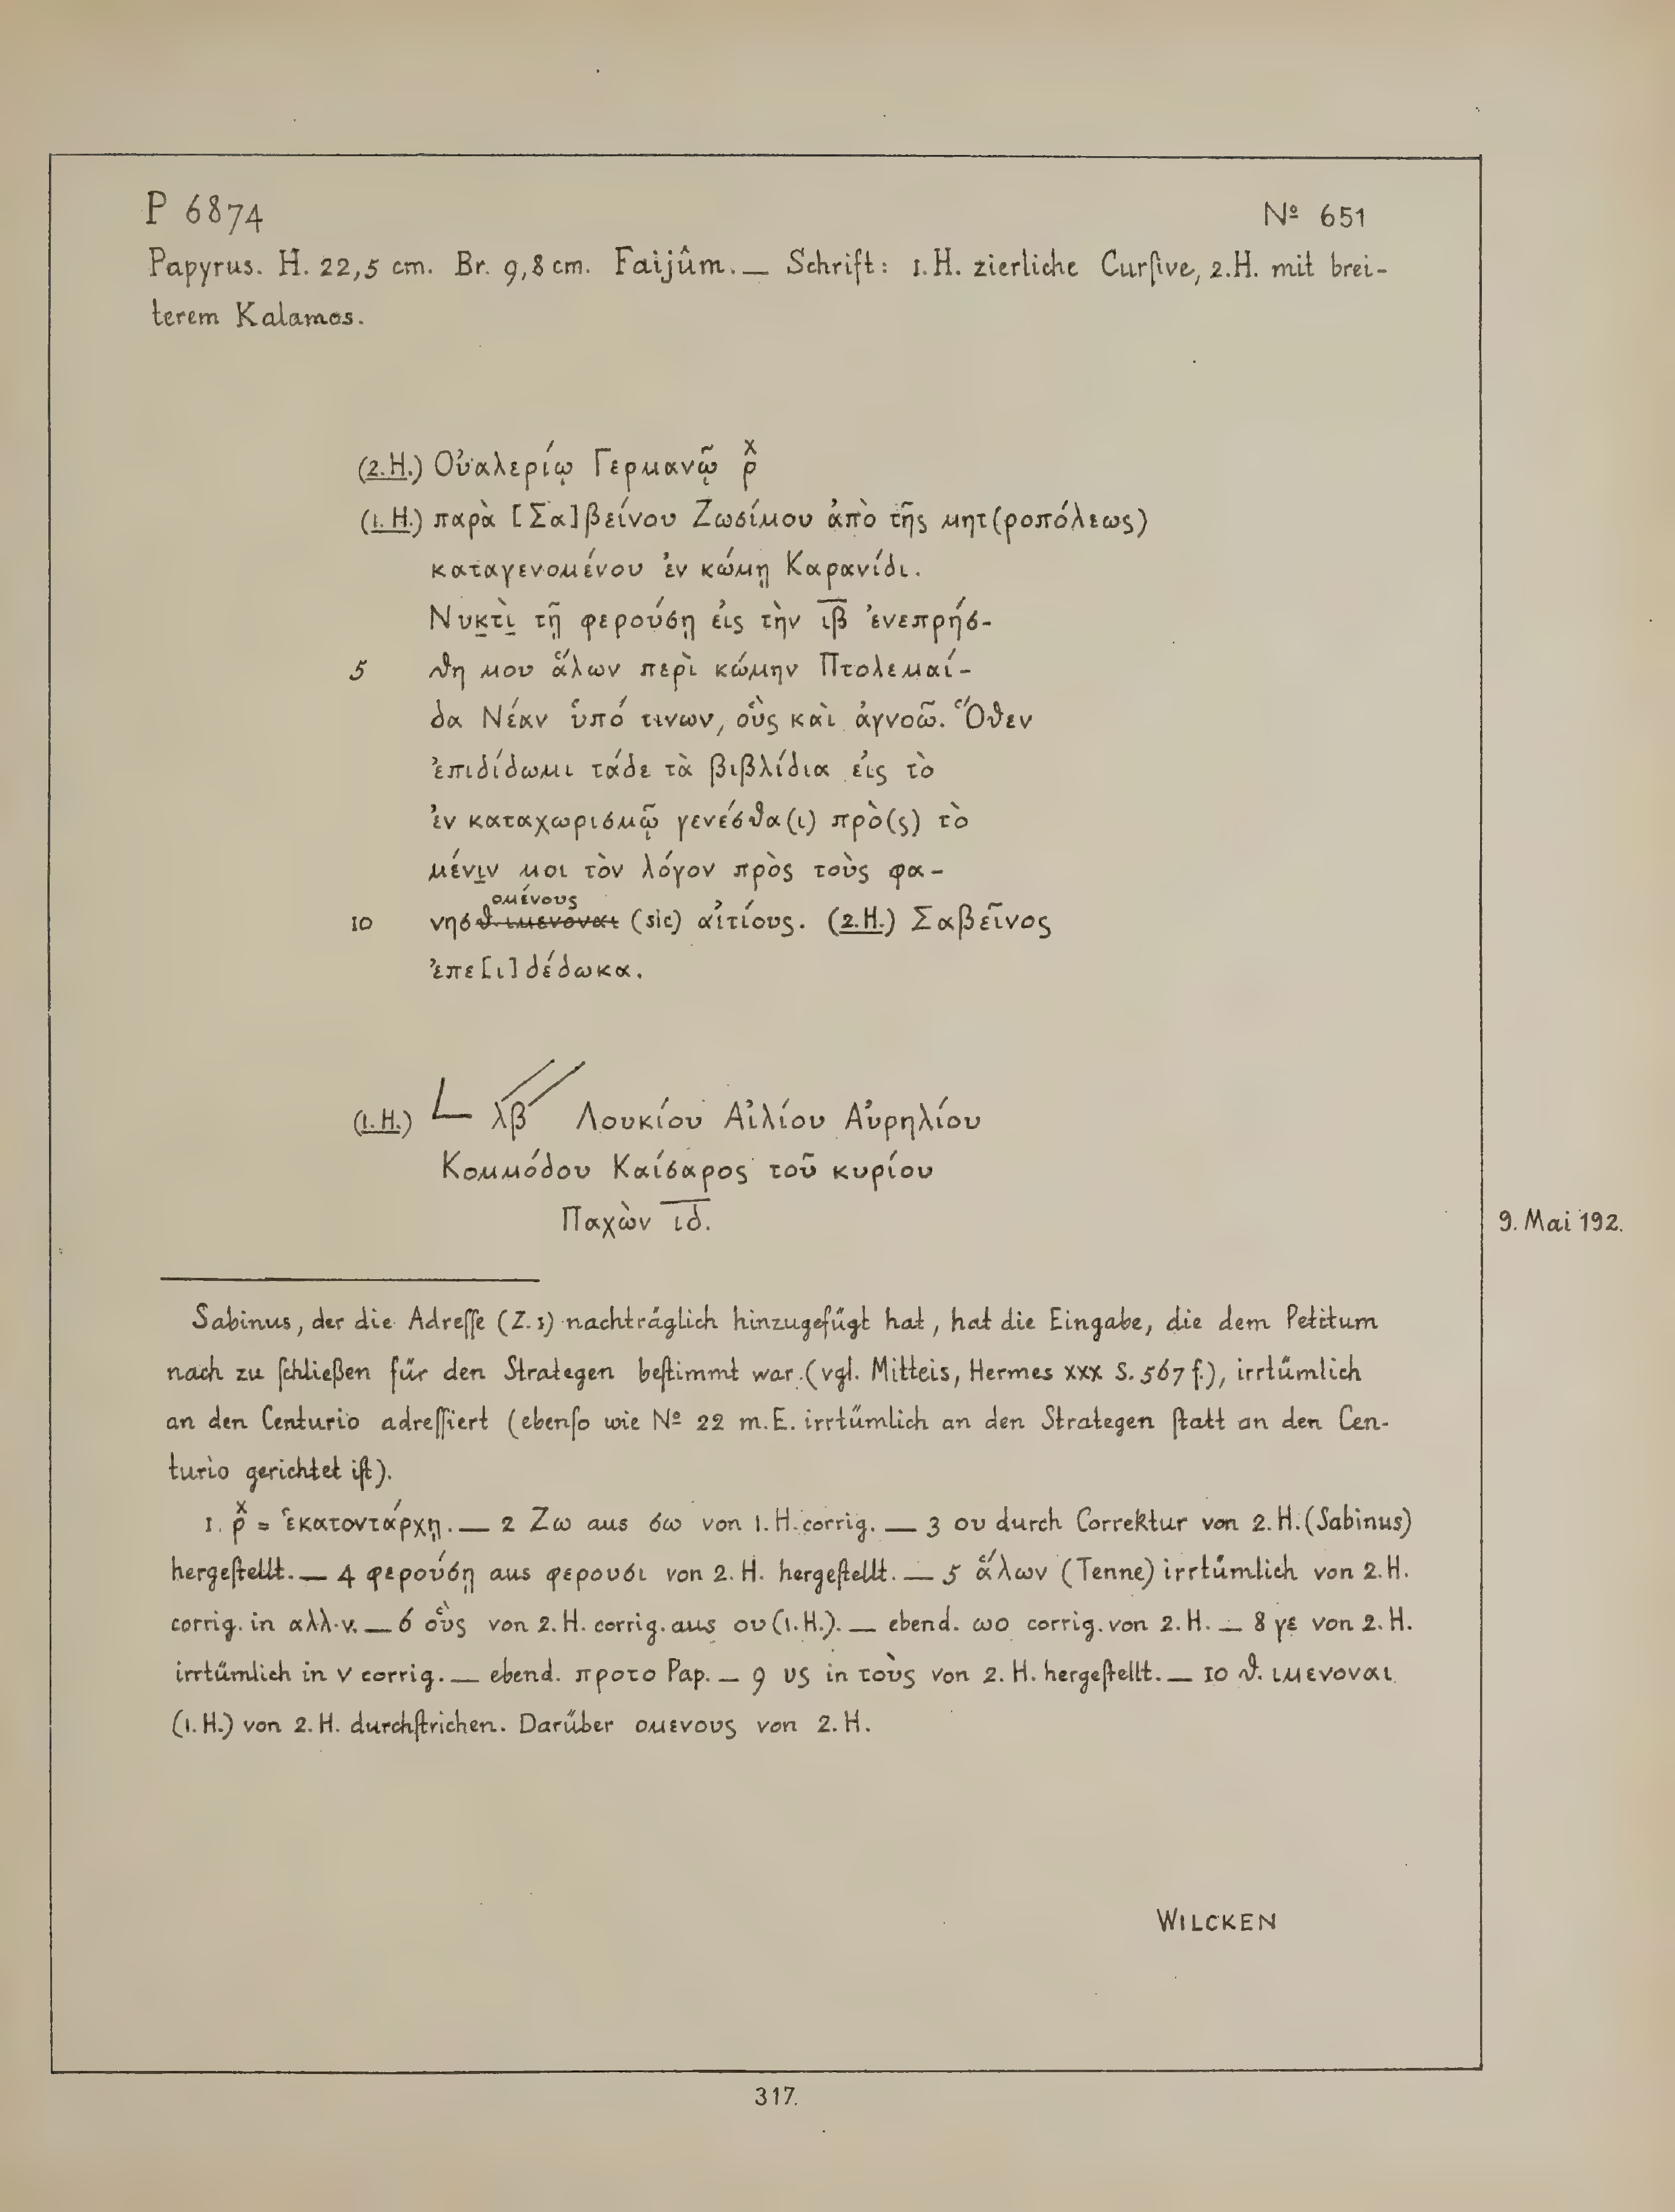 P 6874 Nº 651
Papyrus. H. 22,5 cm. Br. 9,8 cm. Faijûm. — Schrift: 1.H. zierliche Curſive, 2.H. mit brei-
terem Kalamos.
(2.H.) Οὐαλερίῳ Γερμανῷ ρ̽
(1.H.) παρὰ [Σα]βείνου Ζωσίμου ἀπὸ τῆς μητ(ροπόλεως)
καταγενομένου ἐν κώμῃ Καρανίδι.
Νυκ̲τὶ̲ τῇ φερούσῃ εἰς τὴν ι̅β̅ ἐνεπρήσ-
5 θη μου ἅλων περὶ κώμην Πτολεμαί-
δα Νέαν ὑπό τινων, οὓς καὶ ἀγνοῶ. Ὅθεν
ἐπιδίδωμι τάδε τὰ βιβλίδια εἰς τὸ
ἐν καταχωρισμῷ γενέσθα(ι) πρὸ(ς) τὸ
μένι̲ν μοι τὸν λόγον πρὸς τοὺς φα-
ομένους
10 νησθ.ιμενοναι (sic) αἰτίους. (2.H.) Σαβεῖνος
ἐπε[ι]δέδωκα.
(1.H.) L λβ// Λουκίου Αἰλίου Αὐρηλίου
Κομμόδου Καίσαρος τοῦ κυρίου
Παχὼν ι̅δ̅. 9. Mai 192.
Sabinus, der die Adreſſe (Z.1) nachträglich hinzugefügt hat, hat die Eingabe, die dem Petitum
nach zu ſchließen für den Strategen beſtimmt war (vgl. Mitteis, Hermes xxx S. 567 f.), irrtümlich
an den Centurio adreſſiert (ebenſo wie Nº 22 m.E. irrtümlich an den Strategen ſtatt an den Cen-
turio gerichtet iſt).
1. ρ̽ = ἑκατοντάρχῃ. — 2 Ζω aus σω von 1.H. corrig. — 3 ου durch Correktur von 2.H. (Sabinus)
hergeſtellt. — 4 φερούσῃ aus φερουσι von 2.H. hergeſtellt. — 5 ἅλων (Tenne) irrtümlich von 2.H.
corrig. in αλλ.ν. — 6 οὓς von 2.H. corrig. aus ου (1.H.). — ebend. ωο corrig. von 2.H. — 8 γε von 2.H.
irrtümlich in ν corrig. — ebend. προτο Pap. — 9 υς in τοὺς von 2.H. hergeſtellt. — 10 θ.ιμενοναι
(1.H.) von 2.H. durchſtrichen. Darüber ομενους von 2.H.
WILCKEN
317.